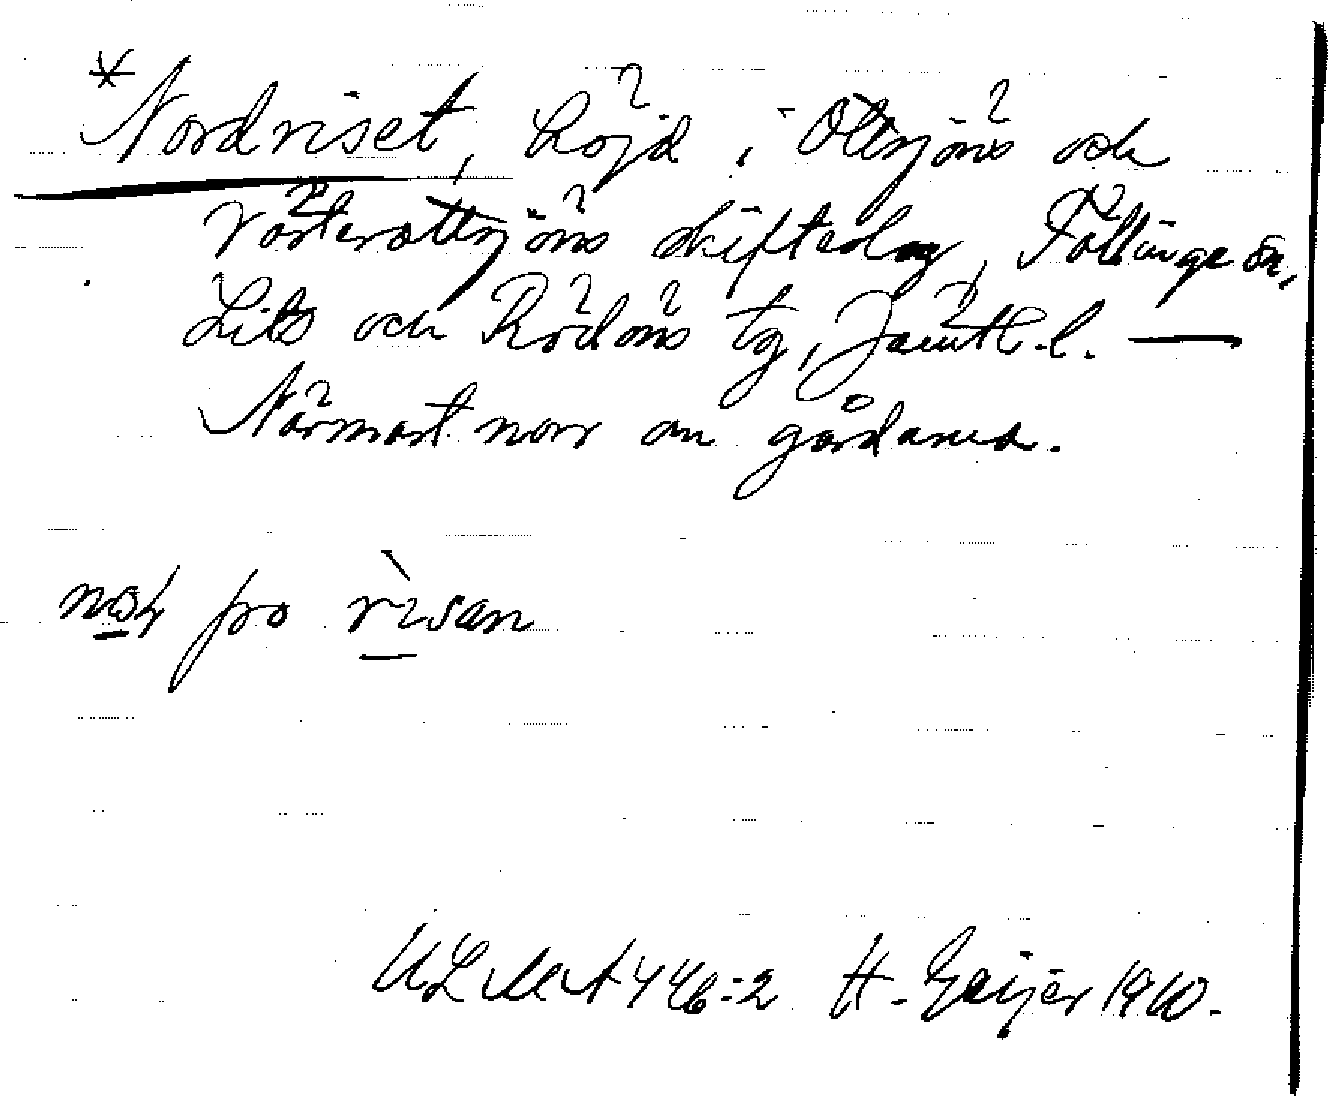 *Nordriset, höjd i Ottsjöns och
Västerottsjöns skifteslag, Föllinge sn,
Lits och Rödöns tg, Jämtl. l. —
Närmast norr om gårdarna.
pro rìsan
ULMA 446:2 H. Geijer 1910.